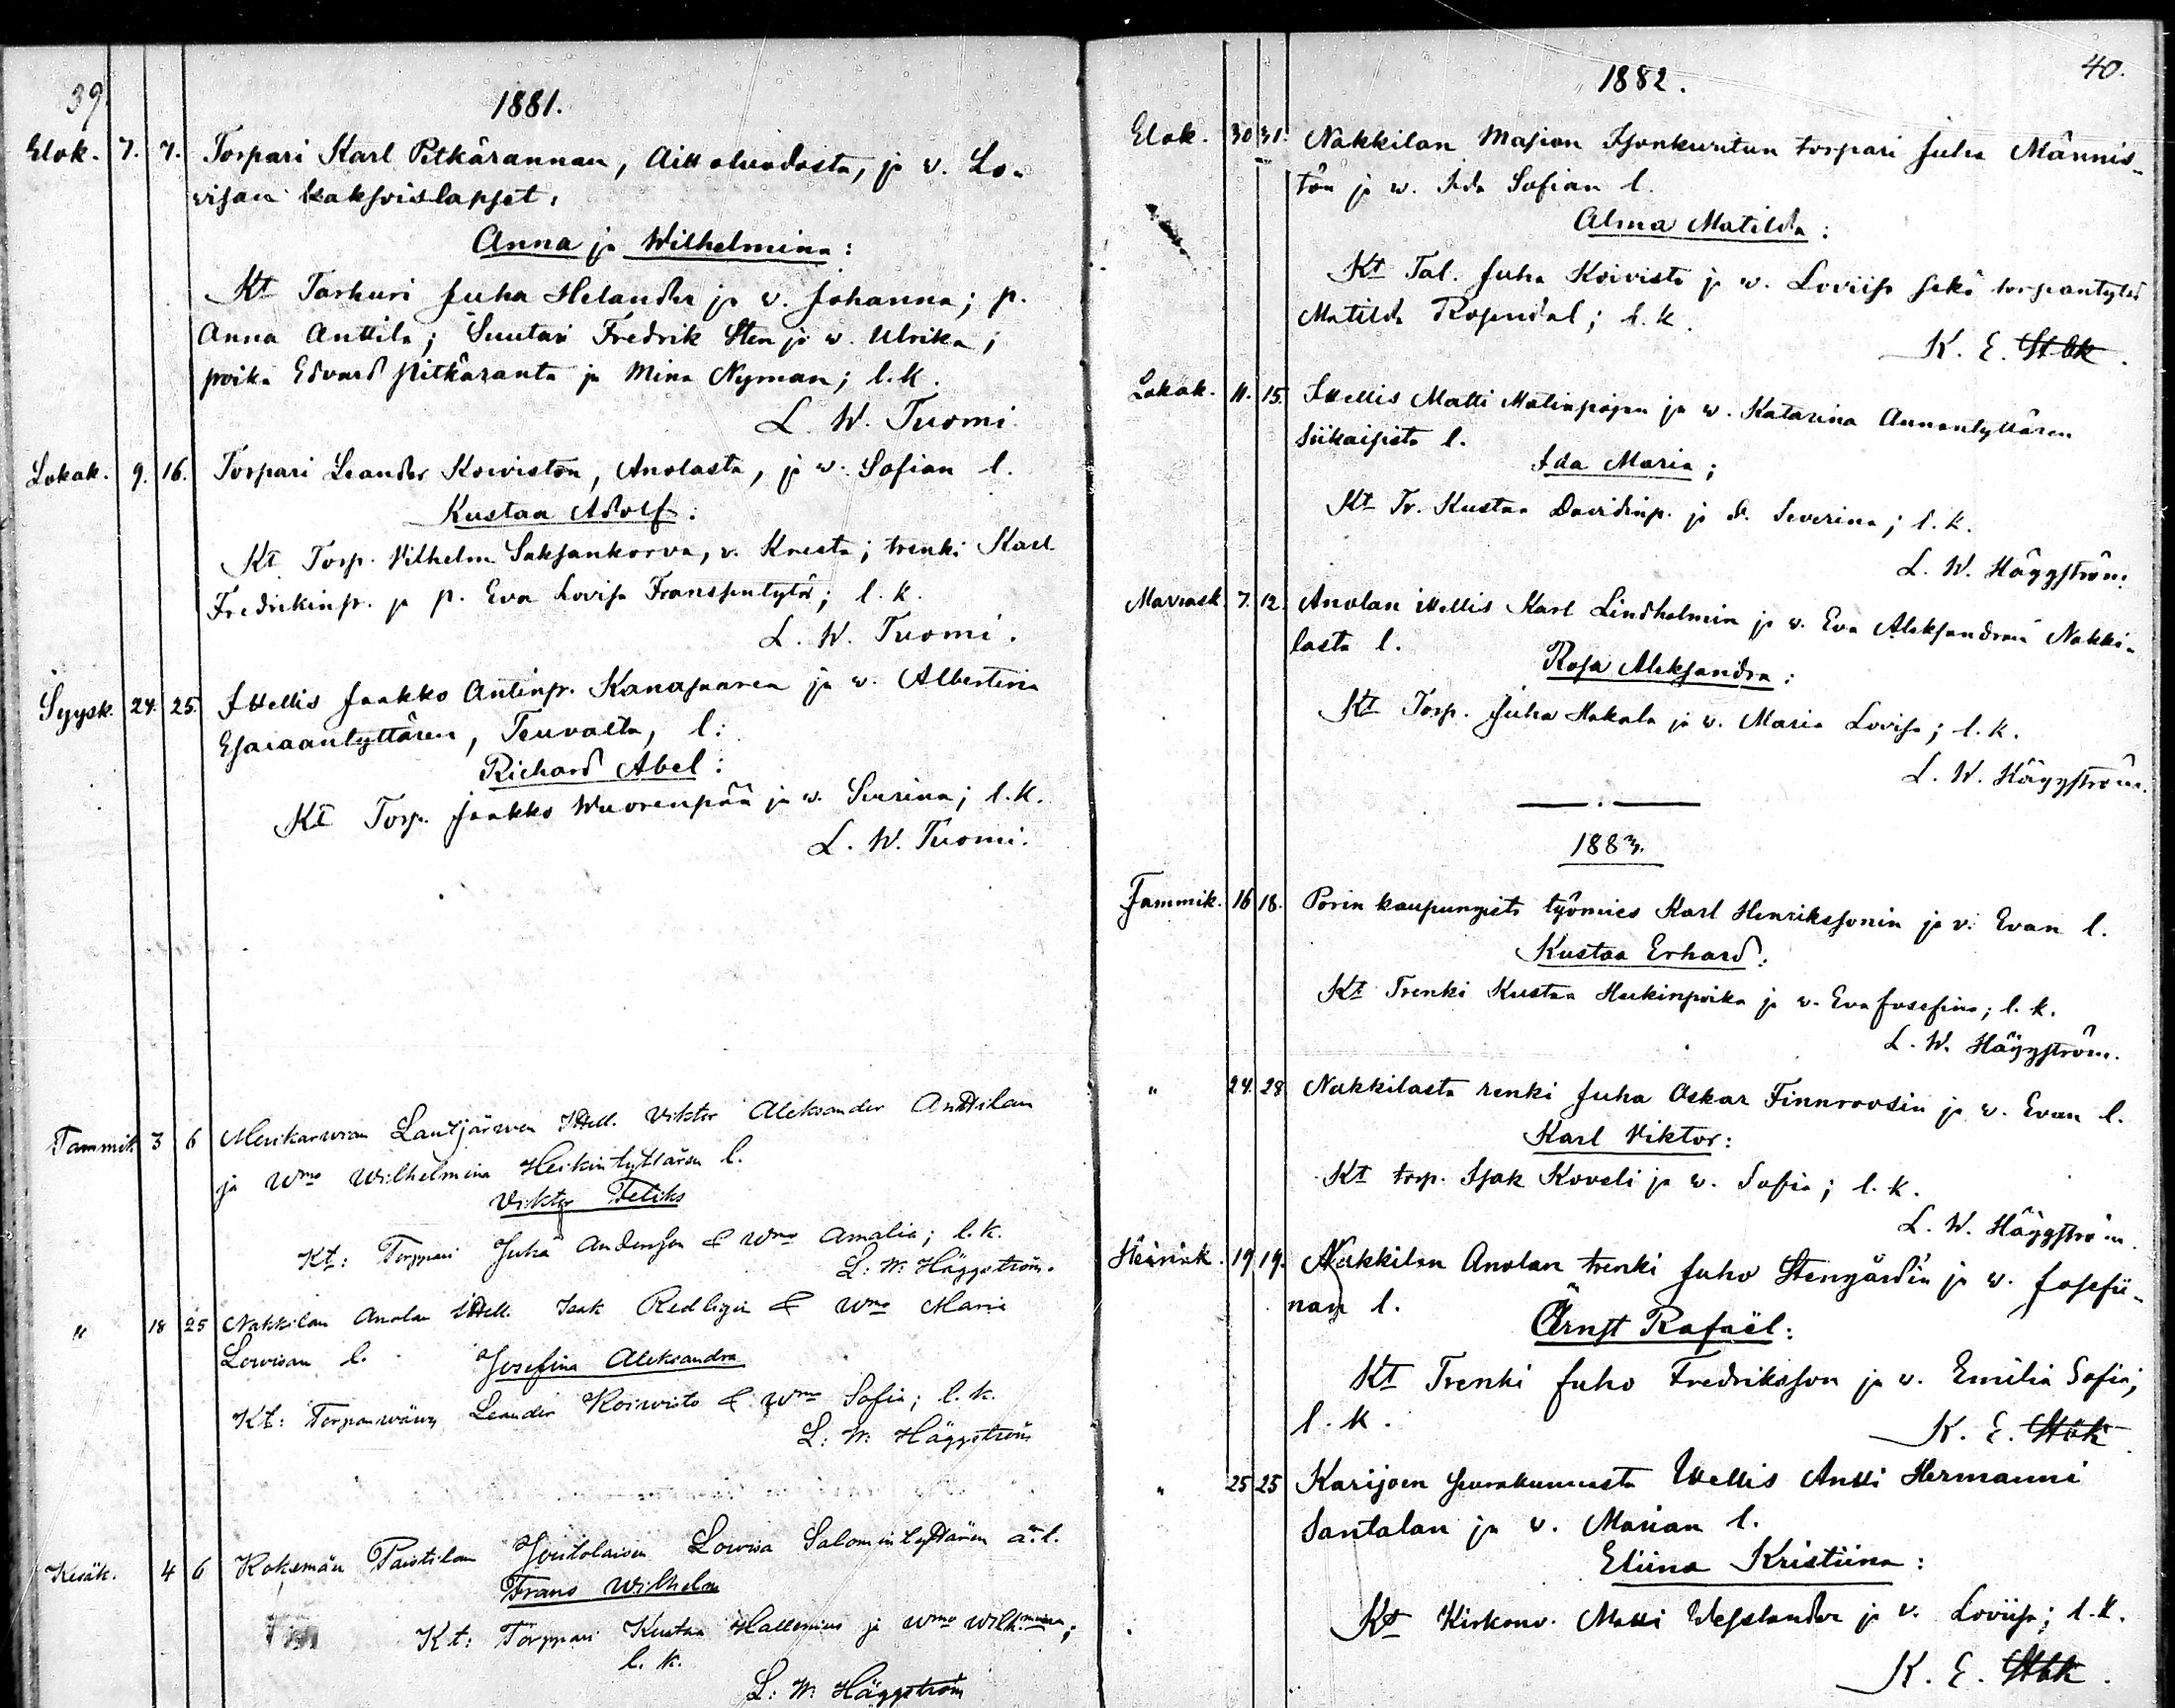 39
1881.
Elok. 7. 7. Torpari Karl Pitkärannan, Aittaluodosta, ja v. Lo-
visan kaksoislapset:
Anna ja Wilhelmina:
Kt Tarkuri Juha Helander ja v. Johanna; p.
Anna Anttila; Suutari Fredrik Sten ja w. Ulrika;
poika Edvard Pitkäranta ja Mina Nyman; l. k.
L. W. Tuomi.
Lokak. 9. 16. Torpari Leander Koiviston, Anolasta, ja w. Sofian l.
Kustaa Adolf:
Kt Torp. Vilhelm Saksankorva, v. Kresta; trenki Karl
Fredrikinp. ja p. Eva Lovisa Fransentytär; l. k.
L. W. Tuomi.
Syysk. 24. 25. Ittellis Jaakko Antinp. Kanasaaren ja w. Albertina
Esaiaantyttären, Teuvalta, l:
Richard Abel:
Kt Torp. Jaakko Wuorenpää ja w. Serina; l. k.
L. W. Tuomi.
Tammik 3 6 Merikarwian Lautjärwen Ittell. Viktor Aleksander Anttilan
ja Wmo Wilhelmina Heikintyttären l.
Viktor Feliks
Kt: Torppari Juha Anderson & Wmo Amalia; l. k.
L: W: Häggström.
" 18 25 Nakkilan Anolan Ittell. Isak Redligin & Wmo Maria
Lowisan l. Josefina Aleksandra
Kt: Torpanwäwy Leander Koiwisto & Wmo Sofia; l. k.
L: W: Häggström
Kesäk. 4 6 Kokemäen Paistilan Itsellolaisen Lowisa Salomintyttären ä. l.
Frans Wilhelm
Kt: Torppari Kustaa Hallenius ja Wmo Wilhmina;
l. k.
L: W: Häggström
40.
1882.
Elok. 30 31. Nakkilan Masian Isonkuritun torpari Juha Männis-
tön ja w. Ida Sofian l.
Alma Matilda:
Kt Tal. Juha Koivisto ja w. Loviisa sekä torpantytär
Matilda Rosendal; l. k.
K. E. Stok.
Lokak. 11. 15. Ittellis Matti Matinpojan ja w. Katarina Annantyttären
Siikaisista l.
Ida Maria;
Kt Tr. Kustaa Davidinp. ja v. Severina; l. k.
L. W. Häggström.
Marrask. 7. 12. Anolan ittellis Karl Lindholmin ja w. Eva Aleksandran Nakki-
lasta l.
Rosa Aleksandra:
Kt Torp. Juha Hakala ja w. Maria Lovisa; l. k.
L. W. Häggström.
1883.
Tammik. 16 18. Porin kaupungista työmies Karl Henrikssonin ja v. Evan l.
Kustaa Erhard:
Kt Trenki Kustaa Heikinpoika ja w. Eva Josefina; l. k.
L. W. Häggström.
" 24. 28 Nakkilasta renki Juha Oskar Finnroosin ja w. Evan l.
Karl Viktor:
Kt torp. Isak Koveli ja w. Sofia; l. k.
L. W. Häggström.
Heinäk. 19 19. Nakkilan Anolan trenki Juho Stengårdin ja w. Josefii-
nan l.
Ernst Rafaël:
Kt Trenki Juho Fredriksson ja w. Emilia Sofia;
l. k.
K. E. Stok
" 25 25 Karijoen seurakunnasta Ittellis Antti Hermanni
Santalan ja w. Marian l.
Eliina Kristiina:
Kt Kirkonv. Matti Weslander ja v. Loviisa; l. k.
K. E. Stok.